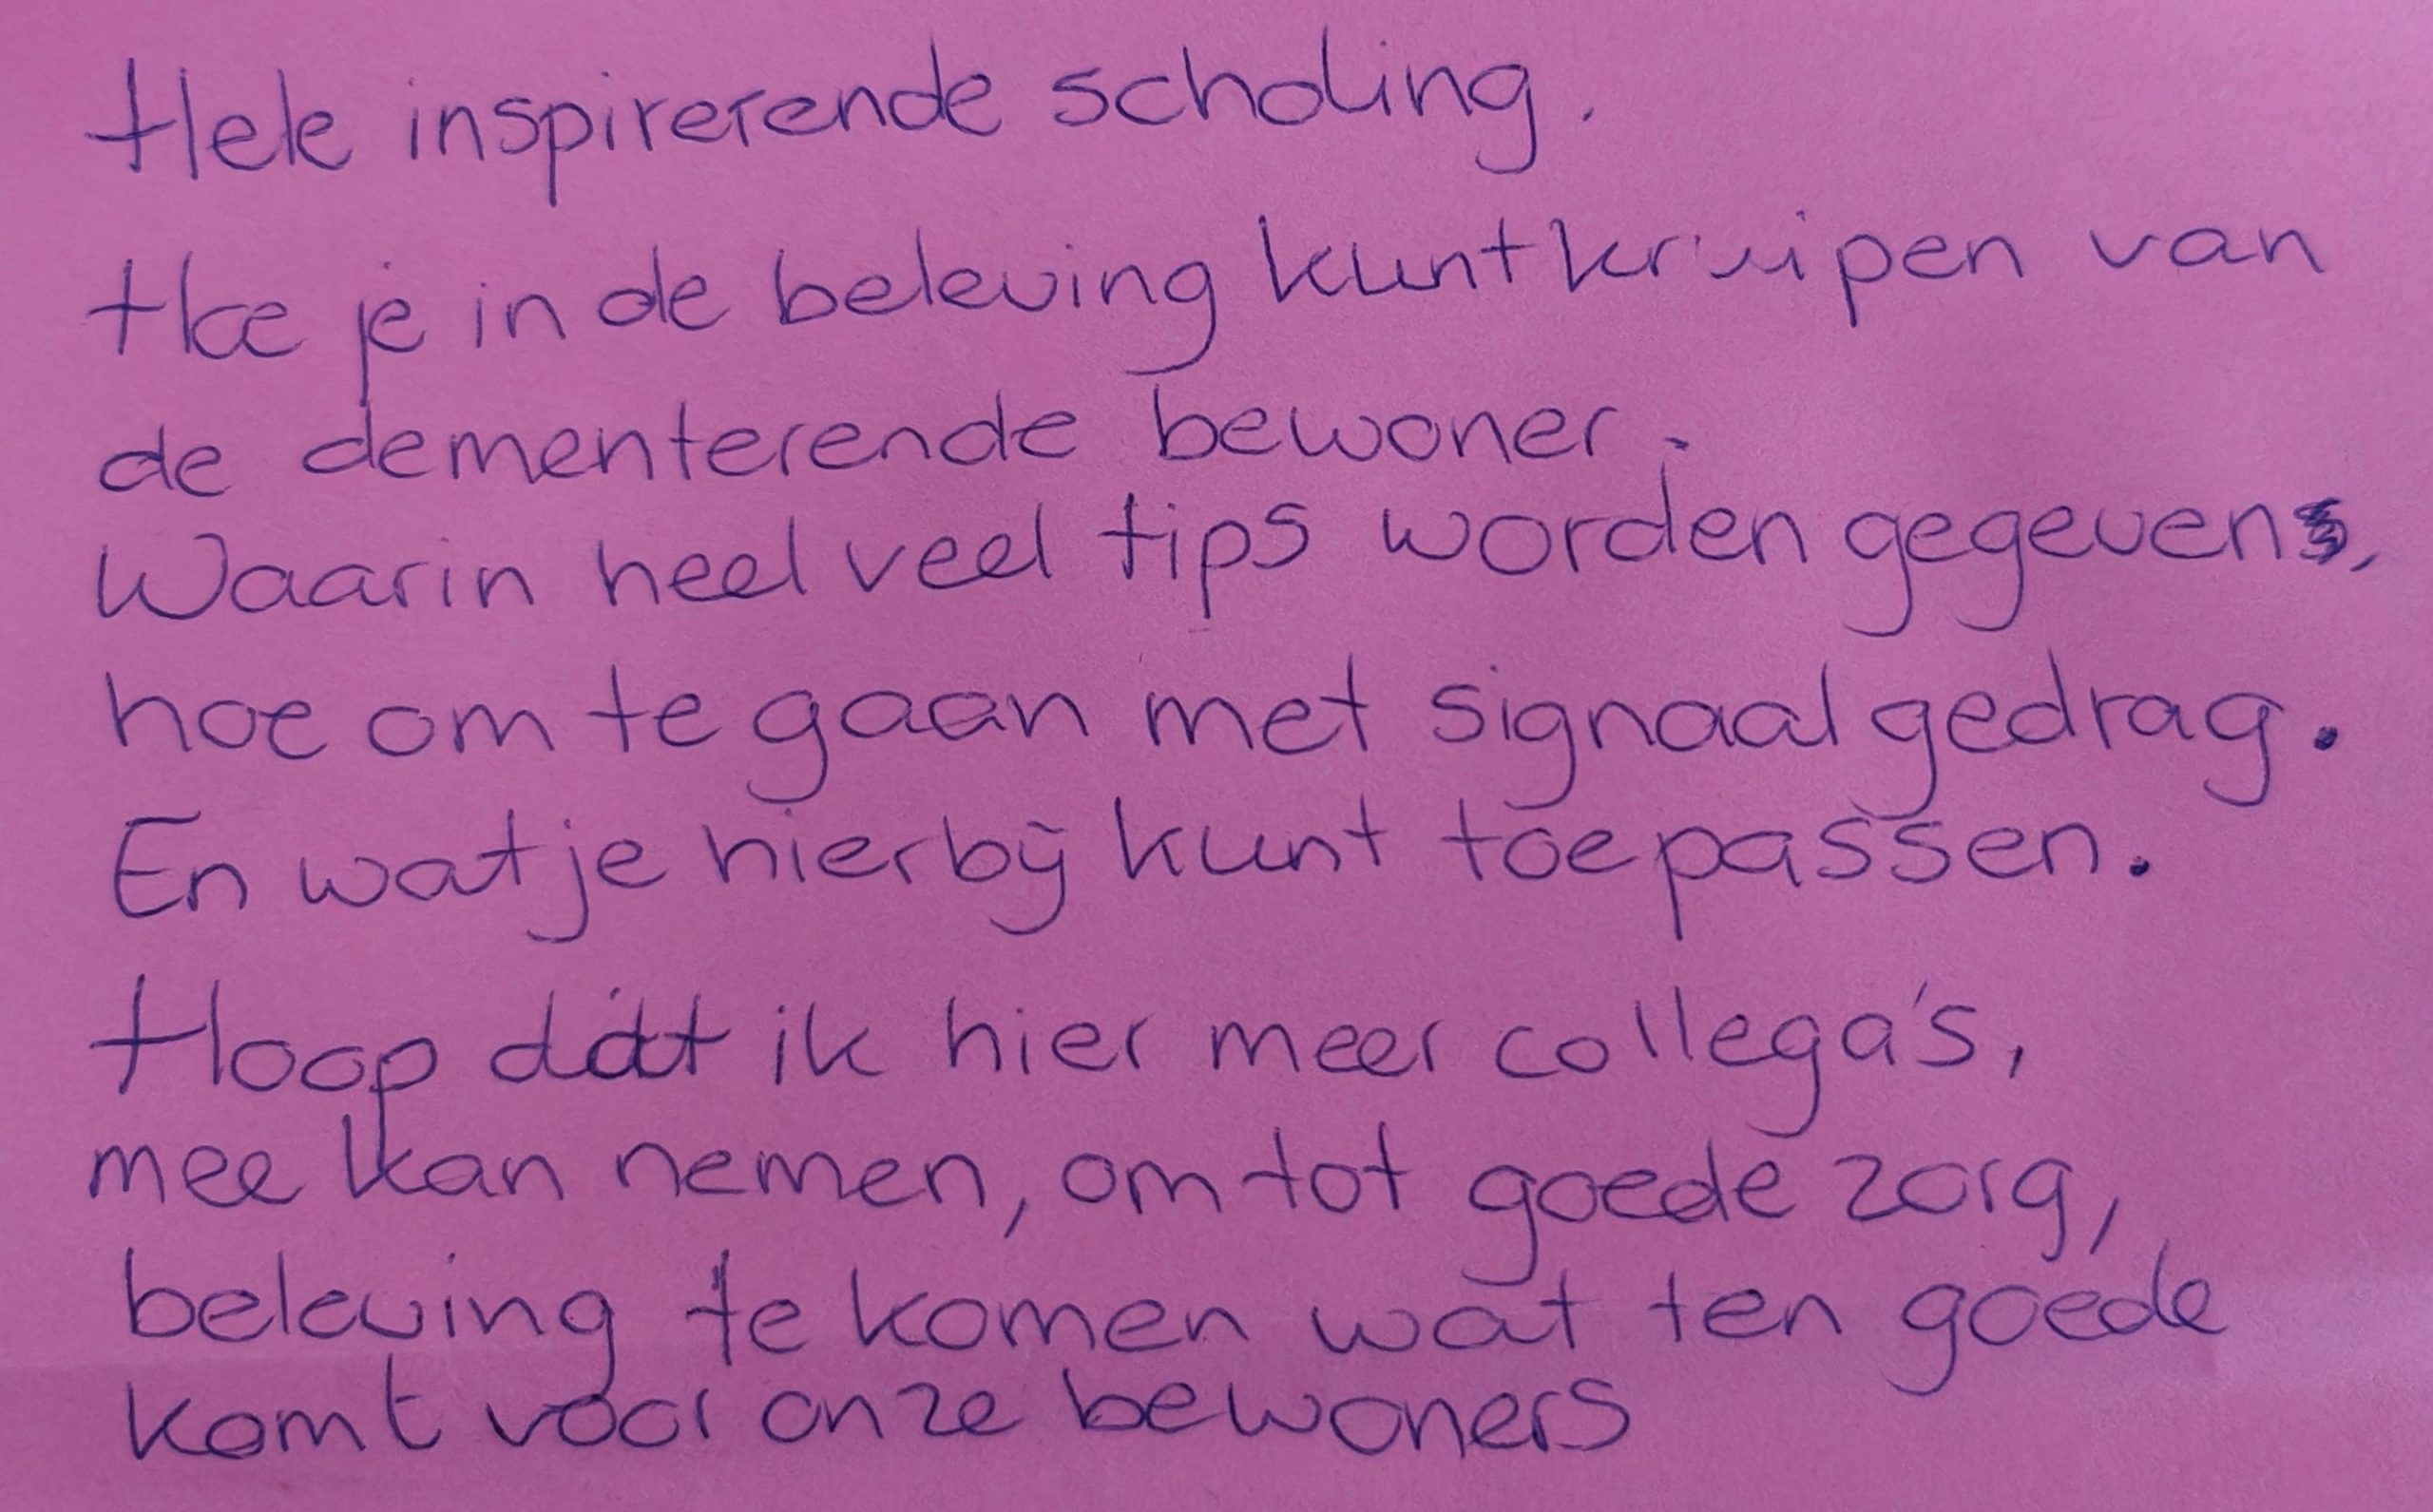 Hele inspirerende scholing.
Hoe je in de beleving kunt kruipen van
de dementerende bewoner.
Waarin heel veel tips worden gegeven,
hoe om te gaan met signaalgedrag.
En wat je hierbij kunt toepassen.
Hoop dat ik hier meer collega's,
mee kan nemen, om tot goede zorg,
beleving te komen wat ten goede
komt voor onze bewoners